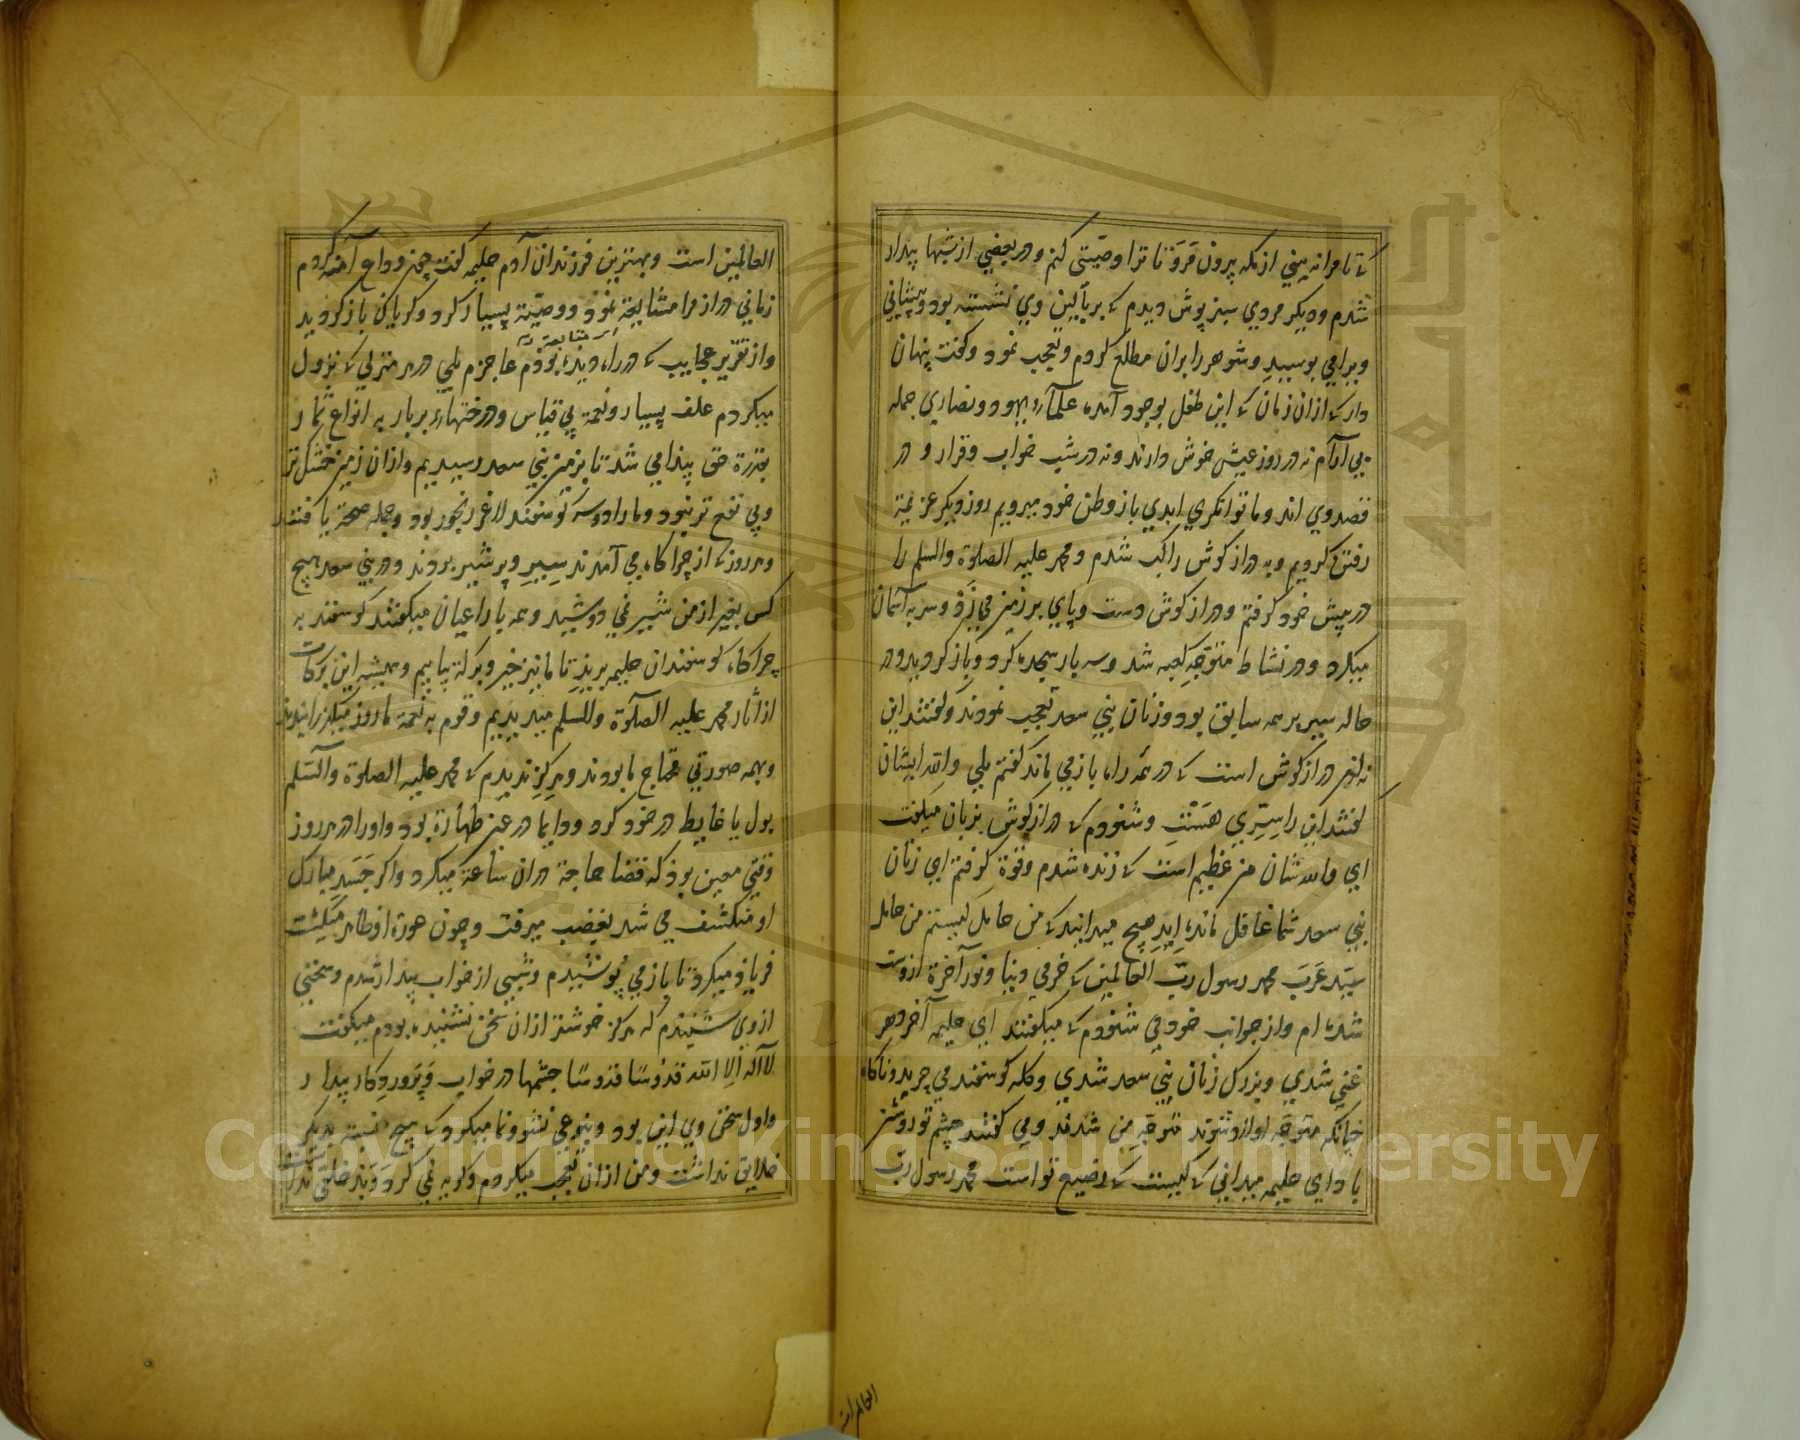 که تا مرا نه بيني از مکه بيرون مرو تا ترا وصيّتي کنم و در بعضي از شبها بيدار
شدم و ديکر مردي سبز پوش ديدم که بر بالين وي نشسته بود و پيشاني
ويرا مي بوسيد و شوهر را بران مطلع کردم و تعجب نمود و کفت پنهان
دار که ازان زمان که اين طفل بوجود آمده علمآء يهود و نصاري جمله
بي آرام نه در روز عيش خوش دارند و نه در شب خواب و قرار و در
قصد وي اند و ما توانکري ابدي باز وطن خود ميرويم روز ديکر عزيمة
رفتن کرديم و به دراز کوش راکب شدم و محمد عليه الصلوة والسلم را
در پيش خود کرفتم و دراز کوش دست و پاي بر زمين مي زد و سر به آسمان
ميکرد و در نشاط متوجه کعبه شد و سه بار سجده کرد و باز کرديد و در
حاله سير بر همه سابق بود و زنان بني سعد تعجب نمودند و کفتند اين
نه آن دراز کوش است که در همه راه باز مي ماند کفتم بلي والله ايشان
کفتند اين را سِرّي هست و شنودم که دراز کوش بزبان ميکفت
اي والله شان من عظيم است که زنده شدم و قوة کرفتم اي زنان
بني سعد شما غافل مانده ايد هيچ ميدانيد که من حامل کيستم من حامل
سيد عرب محمد رسول ربّ العالمين که خرمي دنيا و نور آخرة ازوست
شده ام و از جوانب خود مي شنودم که ميکفتند اي حليمه آخر
غني شدي و بزرکل زنان بني سعد شدي و کله کوسفند مي چريد و ناکاه
متوجه من شدند و مي کفتند چشم تو روشن
باد اي حليمه ميداني که کيست که رضيع تو است محمد رسول ربّ
العالمين است
العالمين است و بهترين فرزندان آدم حليمه کفت چون وداع آمنه کردم
زماني دراز مرا مشايعة نمود و وصيّة بسيار کرد و کريان باز کرديد
و از تقرير عجايب که در راه ديده بودم عاجزم بلي در هر منزلي که نزول
ميکردم علف بسيار و نعمة بي قياس و درختهاء بربار به انواع ثمار
بقدرة حق پيدا مي شد تا بزمين بني سعد رسيديم و ازان زمين خشک تر
و بي نفع تر نبود و ما را دو سه کوسفند لاغر رنجور بود و جمله صحة يافتند
و هر روز که از چراکاه مي آمدند سير و پر شير بودند و در بني سعد هيچ
کس بغير از من شير نمي دوشيد و همه با راعيان ميکفتند کوسفند به
چراکاه کوسفندان حليمه بريد تا ما نيز خير و برکة يابيم و هميشه اين برکات
از آثار محمد عليه الصلوة والسلم ميديديم و قوم به نعمة ما روز ميکذرانيدند
و بهمه صورتي محتاج ما بودند و هرکز نديدم که محمد عليه الصلوة والسّلم
بول يا غايط در خود کرد و دايما در عين طهارة بود و او را در هر روز
وقتي معين بود که قضا حاجة دران ساعة ميکرد و اکر جسد مبارک
او منکشف مي شد بغضب ميرفت و چون عورة او ظاهر ميکشت
فرياد ميکرد تا باز مي پوشيدم و شبي از خواب بيدار شدم و سخني
از وي شنيدم که هرکز خوشتر ازان سخن نشنيده بودم ميکفت
لا اله الا الله قدوسا قدوسا چشمها در خواب و پروردکار بيدار
و اول سخن وي اين بود و بنوعي نشو و نما ميکرد که هيچ نسبة بديکر
خلايق نداشت و من ازان تعجب ميکردم و کريه نمي کرد
Copyright © King Saud University